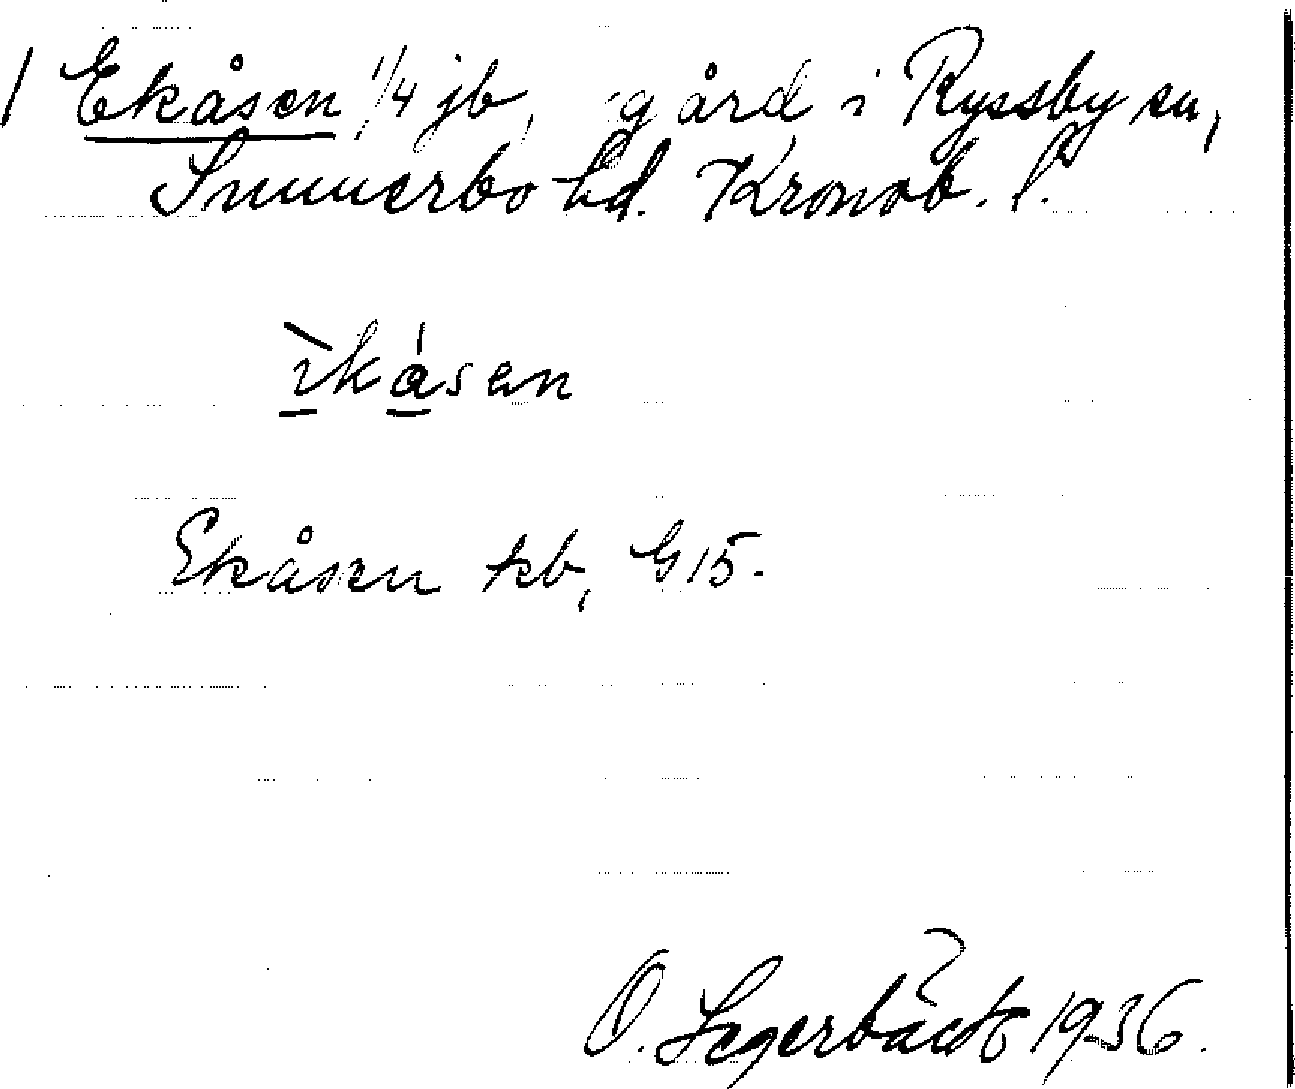 / Ekåsen 1/4 jb, gård i Ryssby sn,
Sunnerbo hd. Kronob. l.
ìkåsen
Ekåsen kb, G15.
O. Segerbäck 1936.